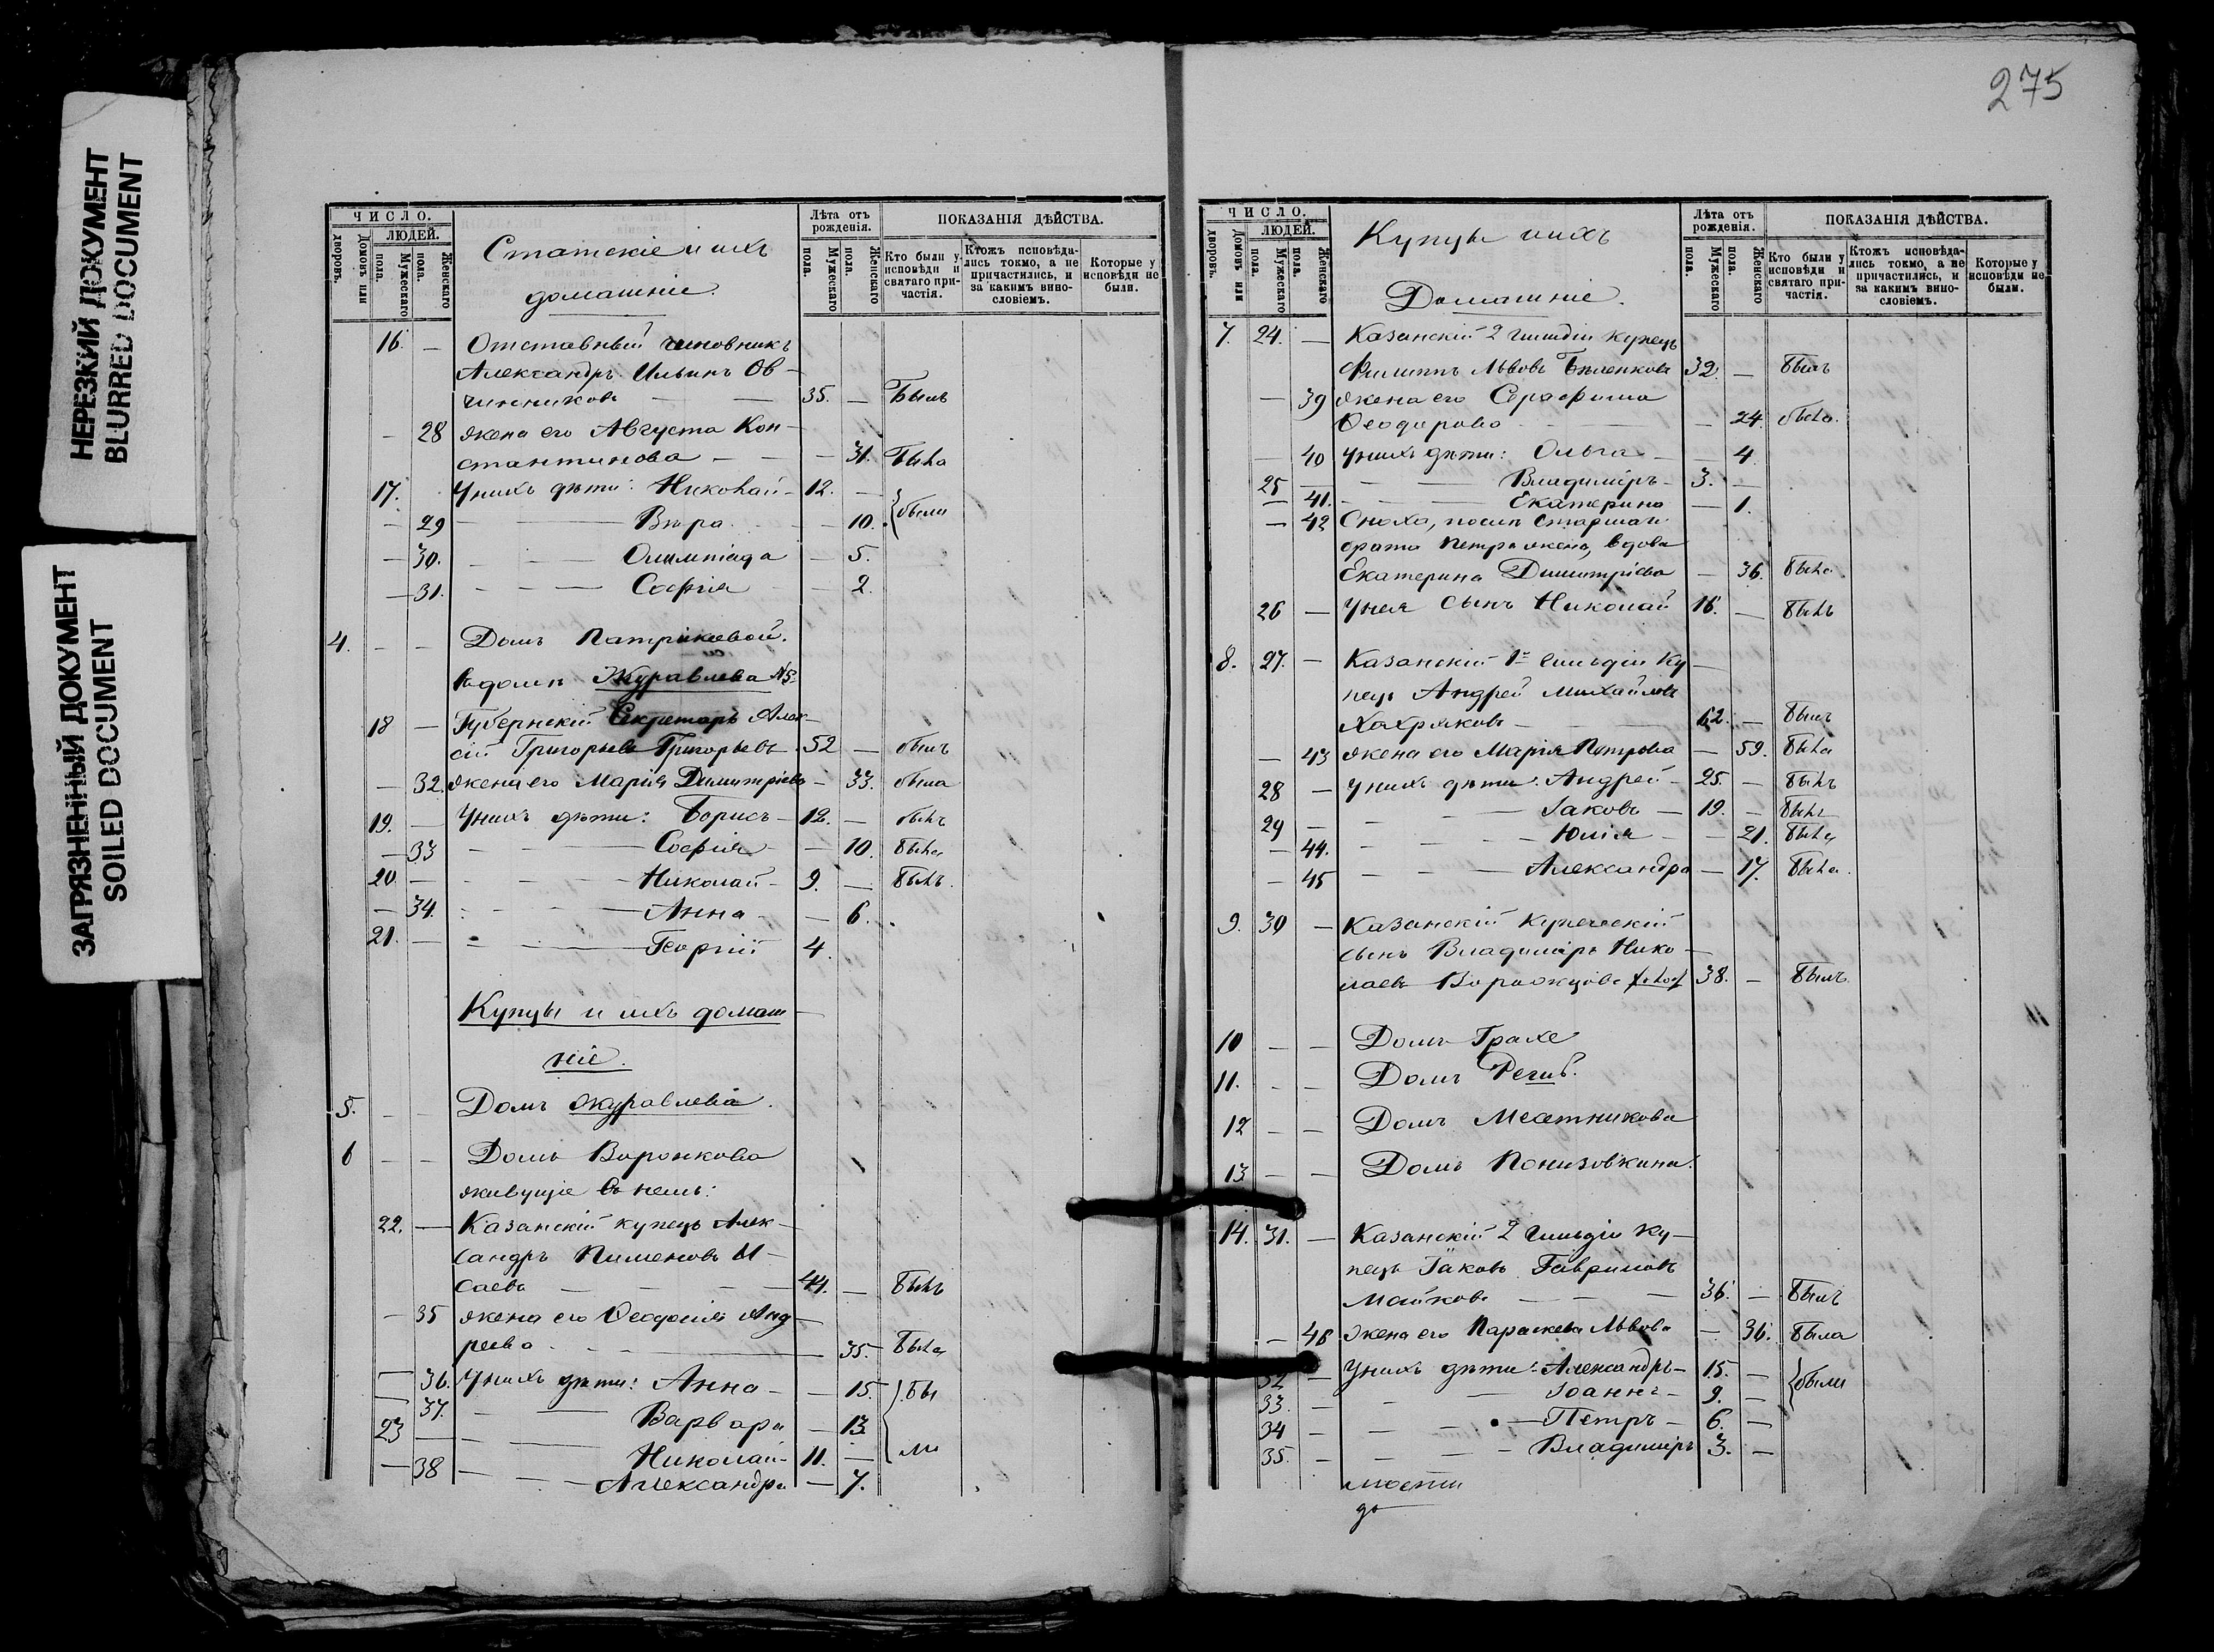 НЕРЕЗКИЙ ДОКУМЕНТ
BLURRED DOCUMENT
ЗАГРЯЗНЕННЫЙ ДОКУМЕНТ
SOILED DOCUMENT
ЧИСЛО.
ЛЮДЕЙ.
Домовъ или дворовъ.
Мужескаго пола.
Женскаго пола.
Статскіе и ихъ
домашніе.
Лѣта отъ рожденія.
Мужескаго пола.
Женскаго пола.
ПОКАЗАНІЯ ДѢЙСТВА.
Кто были у исповѣди и святаго причастія.
Ктожъ исповѣдались токмо, а не причастились, и за какимъ винословіемъ.
Которые у исповѣди не были.
16. — Отставный чиновникъ
Александръ Ильинъ Ов-
чинниковъ — — 35. — Былъ
— 28 жена его Августа Кон-
стантинова — — — 31. Была
17. У нихъ дѣти: Николай — 12. — были
— 29 — Вѣра — 10.
— 30. — Олимпіада — 5.
— 31. — — — Софія — 2.
4. — — Домъ Патрикѣевой.
Въ домѣ Журавлева №5
18 — Губернскій Секретарь Алек-
сій Григорьевъ Григорьевъ 52 — былъ
— 32. жена его Марія Димитріева — 33. была
19. — У нихъ дѣти: Борисъ — 12. — былъ
— 33 — Софія — 10. была
20 — Николай — 9. — былъ.
— 34. — Анна — 6.
21. — — Георгій 4.
Купцы и ихъ домаш-
ніе.
5. — — Домъ Журавлева.
6 — — Домъ Воронкова
живущіе въ немъ:
22. — Казанскій купецъ Алек-
сандръ Пименовъ И-
саевъ — — — 44. — былъ
— 35 жена его Ѳеодосія Анд-
реева. — 35. была
— 36. У нихъ дѣти: Анна — — 15. бы
37. — Варвара — 13.
23 — Николай — 11. — ли
— 38 — Александра — 7.
275
ЧИСЛО.
ЛЮДЕЙ.
Домовъ или дворовъ.
Мужескаго пола.
Женскаго пола.
Купцы и ихъ
Домашніе.
Лѣта отъ рожденія.
Мужескаго пола.
Женскаго пола.
ПОКАЗАНІЯ ДѢЙСТВА.
Кто были у исповѣди и святаго причастія.
Ктожъ исповѣдались токмо, а не причастились, и за какимъ винословіемъ.
Которые у исповѣди не были.
7. 24. — Казанскій 2 гильдіи купецъ
Филиппъ Львовъ Бѣленковъ 32. — былъ
— 39 жена его Серафима
Ѳеодорова — 24. была.
— 40 У нихъ дѣти: Ольга — — 4.
25 — Владиміръ — 3. —
— 41. — Екатерина — 1.
— 42 Сноха, послѣ старшаго
брата Петра жена, вдова
Екатерина Димитріева — 36. была.
26 — У нея сынъ Николай 16. — былъ
8. 27. — Казанскій 1й гильдіи Ку-
пецъ Андрей Михайловъ
Хохряковъ — 62. — былъ
— 43 жена его Марія Петрова — 59. была
28 — У нихъ дѣти: Андрей — 25. — былъ
29 — Іаковъ — 19. — былъ
— 44. — Юлія — 21. была
— 45 — Александра — 17. была.
9. 30 — Казанскій купеческій
сынъ Владиміръ Нико-
лаевъ 38. — былъ
10 — — Домъ Грахе
11. — — Домъ
12 — — Домъ Месетникова
13 — — Домъ Понизовкина.
14. 31. — Казанскій 2 гильдіи ку-
пецъ Іаковъ Гавриловъ
Майковъ — — 36. — былъ
— 46 Жена его Параскева Львова — 36. была
32 — У нихъ дѣти: Александръ — 15. — были
33. — — Іоаннъ — 9. —
34 — — Петръ — 6. —
35. — — Владиміръ 3. —